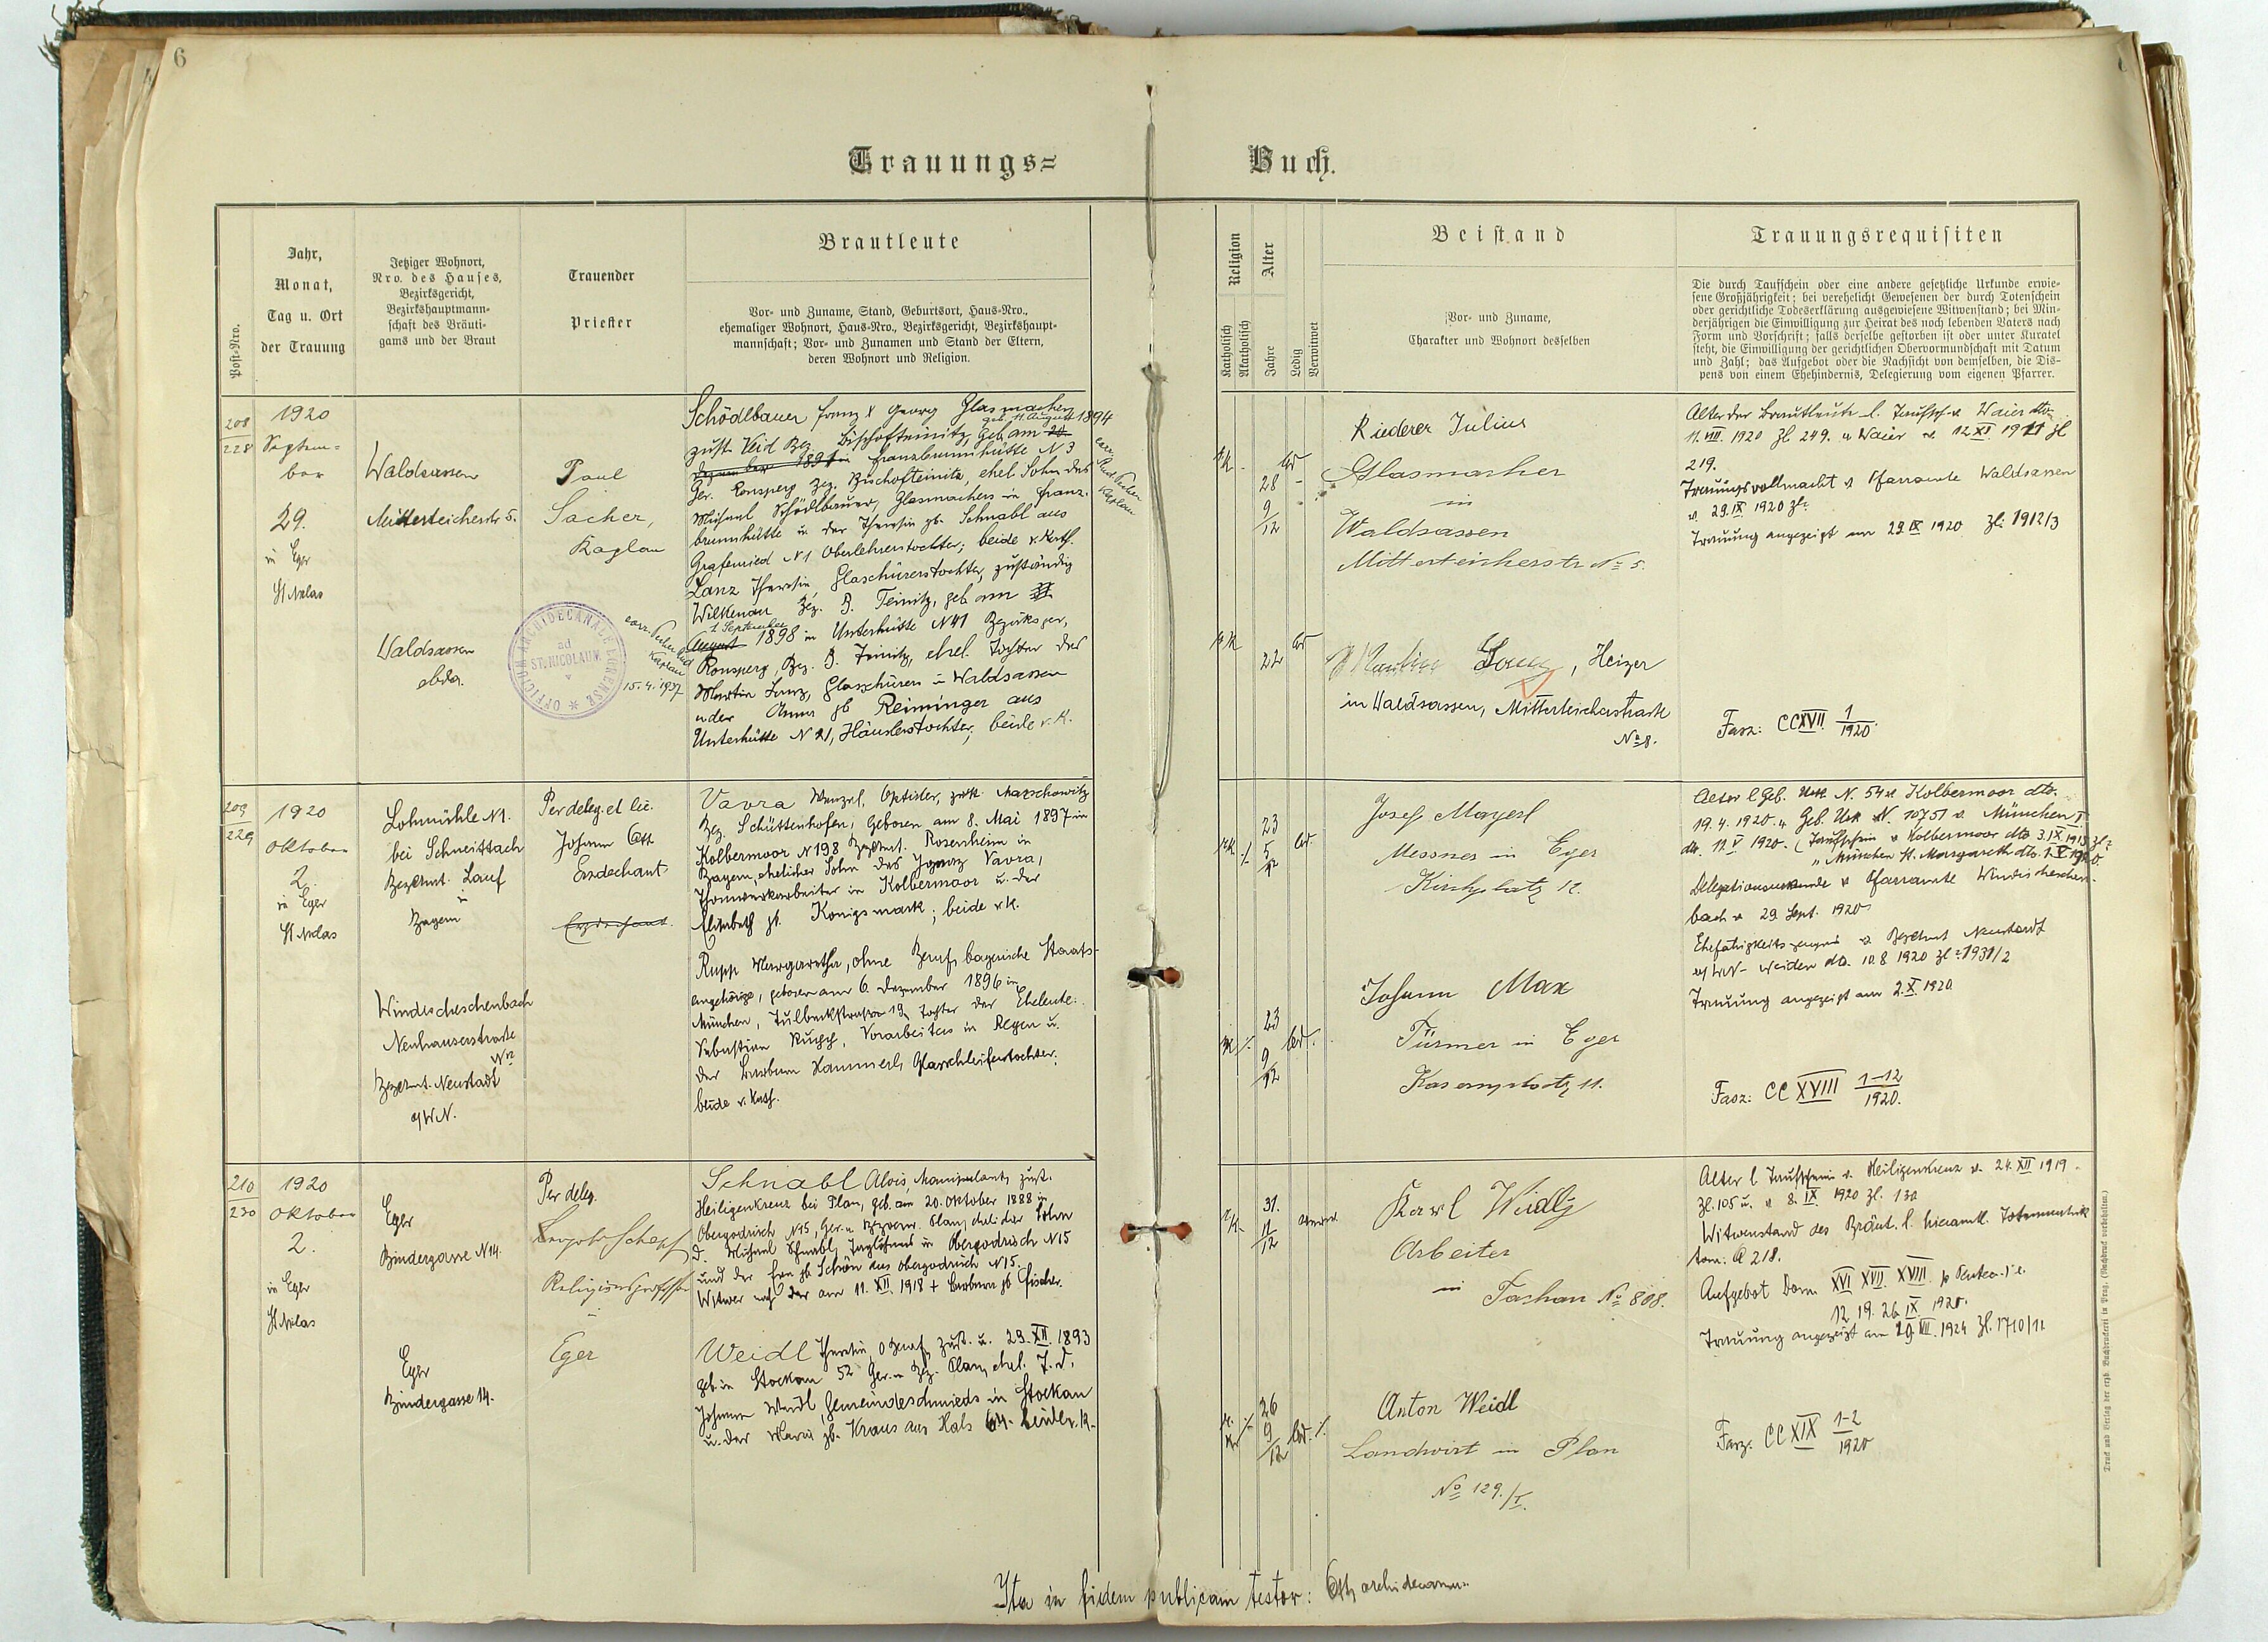 6
Trauungs=
Buch.
Post-Nro.
Jahr,
Monat,
Tag u. Ort
der Trauung
Jetziger Wohnort,
Nro. des Hauses,
Bezirksgericht,
Bezirkshauptmann-
schaft des Bräuti-
gams und der Braut
Trauender
Priester
Brautleute
Vor- und Zuname, Stand, Geburtsort, Haus-Nro.,
ehemaliger Wohnort, Haus-Nro., Bezirksgericht, Bezirkshaupt-
mannschaft; Vor- und Zunamen und Stand der Eltern,
deren Wohnort und Religion.
Religion
Katholisch
Akatholisch
Alter
Jahre
Ledig
Verwitwet
Beistand
Vor- und Zuname,
Charakter und Wohnort desselben
Trauungsrequisiten
Die durch Taufschein oder eine andere gesetzliche Urkunde erwie-
sene Großjährigkeit; bei verehelicht Gewesenen der durch Totenschein
oder gerichtliche Todeserklärung ausgewiesene Witwenstand; bei Min-
derjährigen die Einwilligung zur Heirat des noch lebenden Vaters nach
Form und Vorschrift; falls derselbe gestorben ist oder unter Kuratel
steht, die Einwilligung der gerichtlichen Obervormundschaft mit Datum
und Zahl; das Aufgebot oder die Nachsicht von demselben, die Dis-
pens von einem Ehehindernis, Delegierung vom eigenen Pfarrer.
208
228
1920
Septem=
ber
29.
in Eger
St Niclas
Waldsassen
Mitterteicherstr 5.
Waldsassen
ebda.
Paul
Sacher,
Kaplan
OFFICIUM ARCHIDECANALE EGRENSE
ad
ST. NICOLAUM
Schödlbauer Franz X Georg Glasmacher
geb. 11. August 1894
zust. Veid Bez. Bischofteinitz, geb am 20.
1891 in Franzbrunnhütte N 3
Ger. Ronsperg Bez. Bischofteinitz, ehel. Sohn des
Michael Schödlbauer, Glasmachers in Franz-
brunnhütte u. der Theresia gb. Schnabl aus
Grafenried N 1 Oberlehrerstochter; beide r. Kath.
Lanz Theresia, Glasschürerstochter, zuständig
Wilkenau Bez. B. Teinitz, geb am
1 September
August 1898 in Unterhütte N 41 Bezirksger,
Ronsperg, Bez. B. Teinitz, ehel. Tochter des
Martin Lanz, Glasschürers in Waldsassen
u der Anna gb Reiminger aus
Unterhütte N 21, Häuslerstochter, beide r. K.
Kaplan
15.4.1937
r K
28
9/12
led
Riederer Julius
Glasmacher
in
Waldsassen
Mitterteicherstr No 5.
r K
22
led
Martin Lanz, Heizer
in Waldsassen, Mitterteicherstraße
No 8.
Alter der Brautleute l. Taufsch. v. Waier dto
11. VIII 1920 Zl. 249. u Waier v. 12 XI. 1911 Zl
219.
Trauungsvollmacht v Pfarramte Waldsassen
v. 29. IX 1920 Zl.
Trauung angezeigt am 29 IX 1920 Zl: 1912/3
Fasz: CCXVII 1/1920.
209
229
1920
Oktober
2.
in Eger
St Niclas
Lohmühle N1.
bei Schneittach
Bezamt. Lauf
in
Bayern
Windischeschenbach
Neuhauserstraße
Bezamt. Neustadt
a/WN.
Per deleg. et lic.
Johann Ott
Erzdechant
Erzdechant
Vavra Wenzel, Optiker, zust. Marschowitz
Bez. Schüttenhofen, geboren am 8. Mai 1897 in
Kolbermoor N 198 Bezamt. Rosenheim in
Bayern, ehelicher Sohn des Ignaz Vavra,
Thonwerkarbeiter in Kolbermoor u. der
Elisabeth gb. Königsmark; beide r. K.
Rupp Margaretha, ohne Beruf, bayerische Staats-
angehörige, geboren am 6. Dezember 1896 in
München, Tulbeckstrasse 19, Tochter der Eheleute:
Sebastian Rupp, Vorarbeiter in Regen u.
der Barbara Hammerl, Glasschleiferstochter;
beide r. Kath.
r K
23
5/12
led.
Josef Mayerl
Messner in Eger
Kirchplatz 12.
23
9/12
led.
Johann Max
Türmer in Eger
Kasernplatz 11.
Alter l. Geb. Urk. N. 54 v. Kolbermoor dto.
19. 4. 1920. u Geb. Urk N. 10751 v. München I
dto. 11. V 1920. (Taufschein v Kolbermoor dto 3. IX 1919 Zl
" München St. Margareth dto. 1. V 1920.
Delegationsurkunde v Pfarramte Windischeschen-
bach v 29. Sept. 1920
Ehefähigkeitszeugnis v. Bezamt Neustadt
a/WN- Weiden dto. 10.8 1920 Zl = 1931/2
Trauung angezeigt am 2. X. 1920
Fasz: CC XVIII 1-12/1920.
210
230
1920
Oktober
2.
in Eger
St Niclas
Eger
Bindergasse N14.
Eger
Bindergasse 14.
Per deleg.
Leopold Schopf
Religionsprofessor
in
Eger
Schnabl Alois, Manipulant, zust.
Heiligenkreuz bei Plan, geb. am 20. Oktober 1888 in
Obergodrisch N 15, Ger. u Bezverw. Plan, ehelicher Sohn
d. Michael Schnabl, Taglöhners in Obergodrisch N15
und der Eva gb. Schön aus Obergodrisch N 15.
Witwer nach der am 11. XII. 1918 + Barbara gb. Fischer.
Weidl Theresia, o Beruf, zust. u. 29. XII. 1893
geb. in Stockau 52 Ger. u. Bez. Plan, ehel. T. d.
Johann Weidl, Gemeindeschmieds in Stockau
u. der Maria gb. Kraus aus Hals 64. beide r. K.
r K.
31.
11/12
verw.
Karl Weidl
Arbeiter
in Tachau No 808.
26
9/12
led.
Anton Weidl
Landwirt in Plan
No 129./I.
Alter l. Taufschein v. Heiligenkreuz v. 24. XII 1919.
Zl. 105 u. v 8. IX 1920 Zl. 130
Witwenstand des Bräut. l. hieramtl. Totenmatrik
tom: A 218.
Aufgebot Dom. XVI XVII. XVIII. p Pentec. i.e.
12. 19. 26 IX 1920.
Trauung angezeigt am 29. VIII. 1924 Zl. 1710/11
Fasz. CC XIX 1-2/1920
Ita in fidem publicam testor: Ott, archidecanus
Druck und Verlag der erzb. Buchdruckerei in Prag. (Nachdruck vorbehalten.)